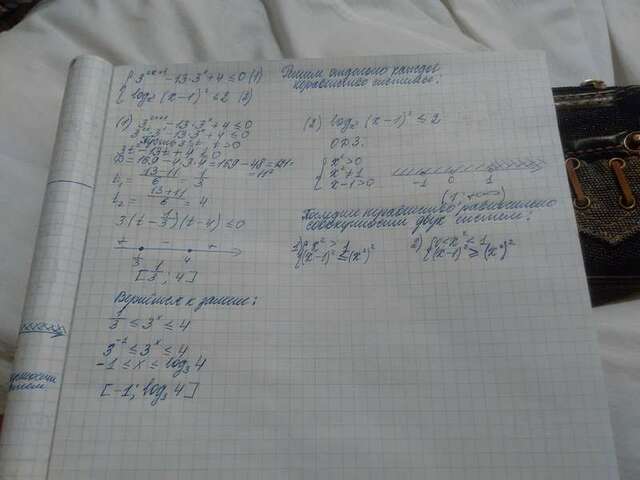 { 3^(2x+1) - 13·3^x + 4 ≤ 0 (1)
{ log (x-1)² ≤ 2 (2)
Решим отдельно каждое
неравенство системы:
(1) 3^(2x+1) - 13·3^x + 4 ≤ 0
- 13·3^x + 4 ≤ 0
Пусть t > 0
3t² - 13t + 4 ≤ 0
D = 169 - 4·3·4 = 169 - 48 = 121 = 11²
t₁ = (13-11)/6 = 1/3
t₂ = (13+11)/6 = 4
3(t - 1/3)(t - 4) ≤ 0
+ - +
1/3 4
[1/3; 4]
Вернёмся к замене:
1/3 ≤ 3^x ≤ 4
3^(-1) ≤ 3^x ≤ 4
-1 ≤ x ≤ log₃ 4
[-1; log₃ 4]
(2) log (x-1)² ≤ 2
ОДЗ:
{ x² > 0
{ x² ≠ 1
{ x-1 > 0
-1 0 1
(1; +∞)
неравенство равносильно
совокупности двух систем:
1) { x² > 1
{ (x-1)² ≤ (x²)²
2) { 0 < x² < 1
{ (x-1)² ≥ (x²)²